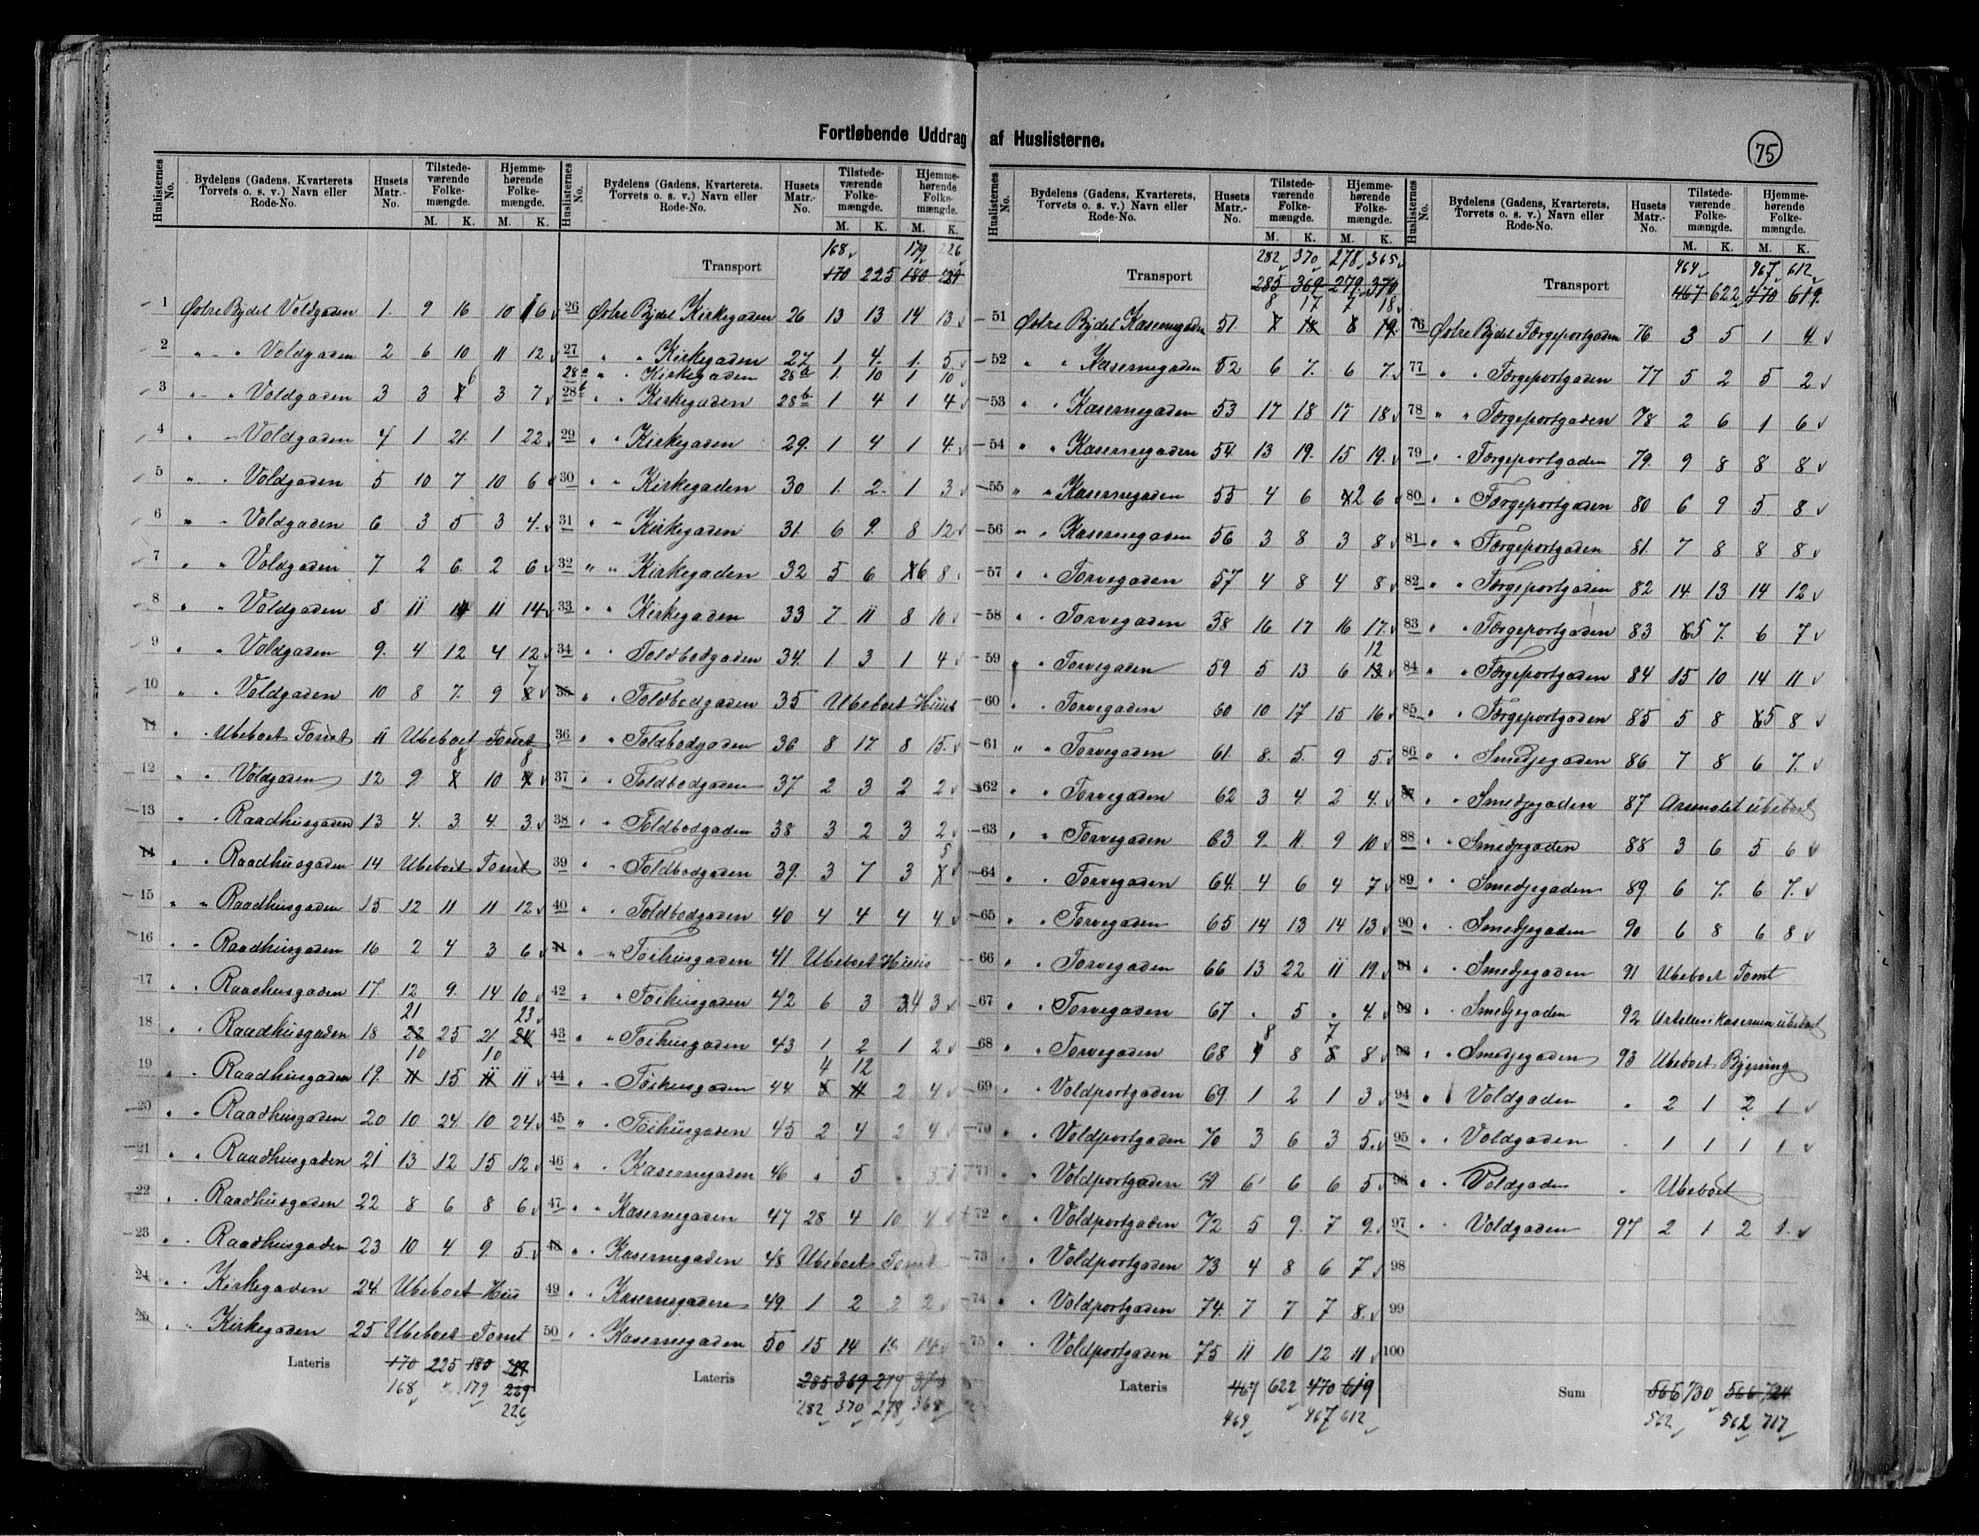 Fortløbende Uddrag af Huslisterne.
75
Huslisternes No. Bydelens (Gadens, Kvarterets, Torvets o. s. v.) Navn eller Rode-No. Husets Matr.-No. Tilstedeværende Folkemængde. M. K. Hjemmehørende Folkemængde. M. K.
1 Østre Bydel Voldgaden 1. 9 16 10 16
2 " " Voldgaden 2 6 10 11 12
3 " " Voldgaden 3 3 6 3 7
4 " Voldgaden 4 1 21 1 22
5 " " Voldgaden 5 10 7 10 6
6 " " Voldgaden 6 3 5 3 4
7 " " Voldgaden 7 2 6 2 6
8 " " Voldgaden 8 11 14 11 14
9 " " Voldgaden 9. 4 12 4 12
10 " " Voldgaden 10 8 7 9 7
11 " Ubeboet Tomt 11 Ubeboet Tomt
12 " " Voldgaden 12 9 8 10 8
13 " " Raadhusgaden 13 4 3 4 3
14 " " Raadhusgaden 14 Ubeboet Tomt
15 " " Raadhusgaden 15 12 11 11 12
16 " " Raadhusgaden 16 2 4 3 6
17 " " Raadhusgaden 17. 12 9 14 10
18 " " Raadhusgaden 18 21 25 21 23
19 " " Raadhusgaden 19. 10 15 10 11
20 " " Raadhusgaden 20 10 24 10 24
21 " " Raadhusgaden 21 13 12 15 12
22 " " Raadhusgaden 22 8 6 8 6
23 " " Raadhusgaden 23 10 4 9 5
24 " " Kirkegaden 24 Ubeboet Hus
25 " " Kirkegaden 25 Ubeboet Tomt
Lateris 170 225 180 229
168 179 226
Transport 168 179 226
170 225 180 229
26 Østre Bydel Kirkegaden 26 13 13 14 13
27 " " Kirkegaden 27 1 4 1 5
28a " " Kirkegaden 28a 1 10 1 10
28b " " Kirkegaden 28b 1 4 1 4
29 " " Kirkegaden 29. 1 4 1 4
30 " " Kirkegaden 30 1 2 1 3
31 " " Kirkegaden 31 6 9 8 12
32 " " Kirkegaden 32 5 6 6 8
33 " " Kirkegaden 33 7 11 8 10
34 " " Toldbodgaden 34 1 3 1 4
35 " Toldbodgaden 35 Ubeboet Huus
36 " " Toldbodgaden 36 8 17 8 15
37 " " Toldbodgaden 37 2 3 2 2
38 " " Toldbodgaden 38 3 2 3 2
39 " " Toldbodgaden 39. 3 7 3 5
40 " " Toldbodgaden 40 4 4 4 4
41 " " Töihusgaden 41 Ubeboet Huus
42 " " Töihusgaden 42 6 3 4 3
43 " " Töihusgaden 43 1 2 1 2
44 " " Töihusgaden 44 4 12 2 4
45 " " Töihusgaden 45 2 4 2 4
46 " " Kasernegaden 46 " 5 "
47 " " Kasernegaden 47 28 4 10 4
48 " " Kasernegaden 48 Ubeboet Tomt
49 " " Kasernegaden 49. 1 2 2 2
50 " " Kasernegaden 50 15 14 14
Lateris 285 369 279 370
282 370 278 368
Transport 282 370 278 365
285 369 279 370
51 Østre Bydel Kasernegaden 51. 8 17 7 18
52 " " Kasernegaden 52 6 7 6 7
53 " " Kasernegaden 53 17 18 17 18
54 " " Kasernegaden 54 13 19 15 19
55 " " Kasernegaden 55 4 6 2 6
56 " " Kasernegaden 56 3 8 3 8
57 " " Torvegaden 57 4 8 4 8
58 " " Torvegaden 58 16 17 16 17
59 " " Torvegaden 59 5 13 6 12
60 " " Torvegaden 60 10 17 15 16
61 " " Torvegaden 61 8 5 9 5
62 " " Torvegaden 62 3 4 2 4
63 " " Torvegaden 63 9 11 9 10
64 " " Torvegaden 64 4 6 4 7
65 " " Torvegaden 65 14 13 14 13
66 " " Torvegaden 66 13 22 11 19
67 " " Torvegaden 67 " 5 " 4
68 " " Torvegaden 68 8 8 7 8
69 " " Voldportgaden 69 1 2 1 3
70 " " Voldportgaden 70 3 6 3 5
71 " " Voldportgaden 71 6 6 6 5
72 " " Voldportgaden 72 5 9 7 9
73 " " Voldportgaden 73 4 8 6 7
74 " " Voldportgaden 74 7 7 7 8
75 " " Voldportgaden 75 11 10 12 11
Lateris 467 622 470 619
464 467 612
Transport 464 467 612
467 622 470 619
76 Østre Bydel Færgeportgaden 76 3 5 1 4
77 " " Færgeportgaden 77 5 2 5 2
78 " " Færgeportgaden 78 2 6 1 6
79 " " Færgeportgaden 79. 9 8 8 8
80 " " Færgeportgaden 80 6 9 5 8
81 " " Færgeportgaden 81. 7 8 8 8
82 " " Færgeportgaden 82 14 13 14 12
83 " " Færgeportgaden 83 5 7 6 7
84 " " Færgeportgaden 84 15 10 14 11
85 " " Færgeportgaden 85 5 8 5 8
86 " " Smedjegaden 86 7 8 6 7
87 " " Smedjegaden 87 Arsenalet ubeboet
88 " " Smedjegaden 88 3 6 5 6
89 " " Smedjegaden 89 6 7 6 7
90 " " Smedjegaden 90 6 8 6 8
91 " " Smedjegaden 91 Ubeboet Tomt
92 " " Smedjegaden 92 ubeboet
93 " " Smedjegaden 93 Ubeboet Bygning
94 " " Voldgaden " 2 1 2 1
95 " " Voldgaden " 1 1 1 1
96 " " Voldgaden " Ubeboet
97 " " Voldgaden 97 2 1 2 1
98
99
100
Sum 566 730 566 724
562 562 717